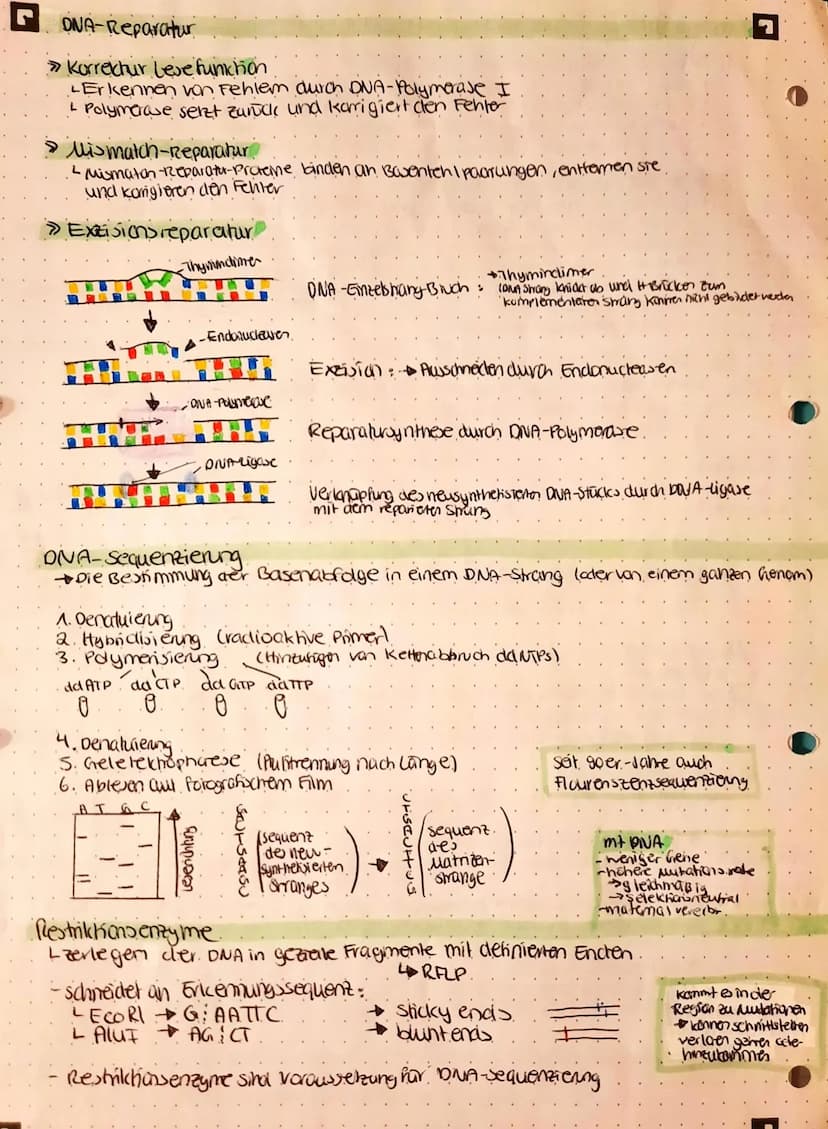 DNA-Reparatur
» Korrektur Lesefunktion
↳ Erkennen von Fehlern durch DNA-Polymerase I
↳ Polymerase setzt zurück und korrigiert den Fehler
» Mismatch-Reparatur
↳ Mismatch-Reparatur-Proteine binden an Basenfehlpaarungen, entfernen sie
und korrigieren den Fehler
» Exzisionsreparatur
Thymindimer
DNA-Einzelstrang-Bruch: → Thymindimer
(dann Strang knickt ab und H-Brücken zum
komplementären Strang können nicht gebildet werden
Endonucleasen
Exzision: → Ausschneiden durch Endonucleasen
DNA-Polymerase
Reparatursynthese durch DNA-Polymerase
DNA-Ligase
Verknüpfung des neusynthetisierten DNA-Stücks durch DNA-Ligase
mit dem reparierten Strang
DNA-Sequenzierung
→ Die Bestimmung der Basenabfolge in einem DNA-Strang (oder von einem ganzen Genom)
1. Denaturierung
2. Hybridisierung (radioaktive Primer)
3. Polymerisierung (Hinzufügen von Kettenabbruch ddNTPs)
ddATP ddCTP ddGTP ddTTP
4. Denaturierung
5. Gelelektrophorese (Auftrennung nach Länge)
6. Ablesen auf fotografischem Film
seit 90er-Jahre auch
Flourenszenzsequenzierung
A T G C
Leserichtung
GACTGAGC
(sequenz
des neu-
synthetisierten
Stranges)
→
CTGACTCG
(sequenz
des
Matrizen-
strange)
mtDNA
- weniger Gene
- höhere Mutationsrate
→ gleichmäßig
→ selektionsneutral
- maternal vererbt
Restriktionsenzyme
↳ zerlegen der DNA in gezielte Fragmente mit definierten Enden
↳ RFLP
- schneidet an Erkennungssequenz:
↳ EcoRI → G¦AATTC → sticky ends
↳ AluI → AG¦CT → blunt ends
kommt es in der
Region zu Mutationen
→ können schnittstellen
verloren gehen oder
hinzukommen
- Restriktionsenzyme sind Voraussetzung für DNA-Sequenzierung